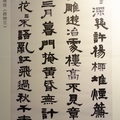 深幾許楊柳堆煙簾
遊冶處樓高不見章
三月暮門掩黃昏無
花不語亂紅飛過秋千